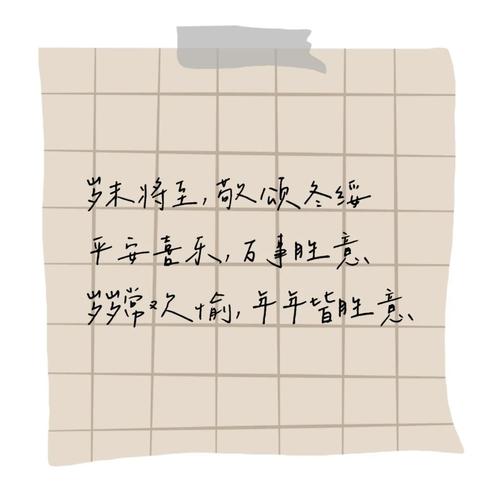 岁末将至,敬颂冬绥
平安喜乐,万事胜意
岁岁常欢愉,年年皆胜意